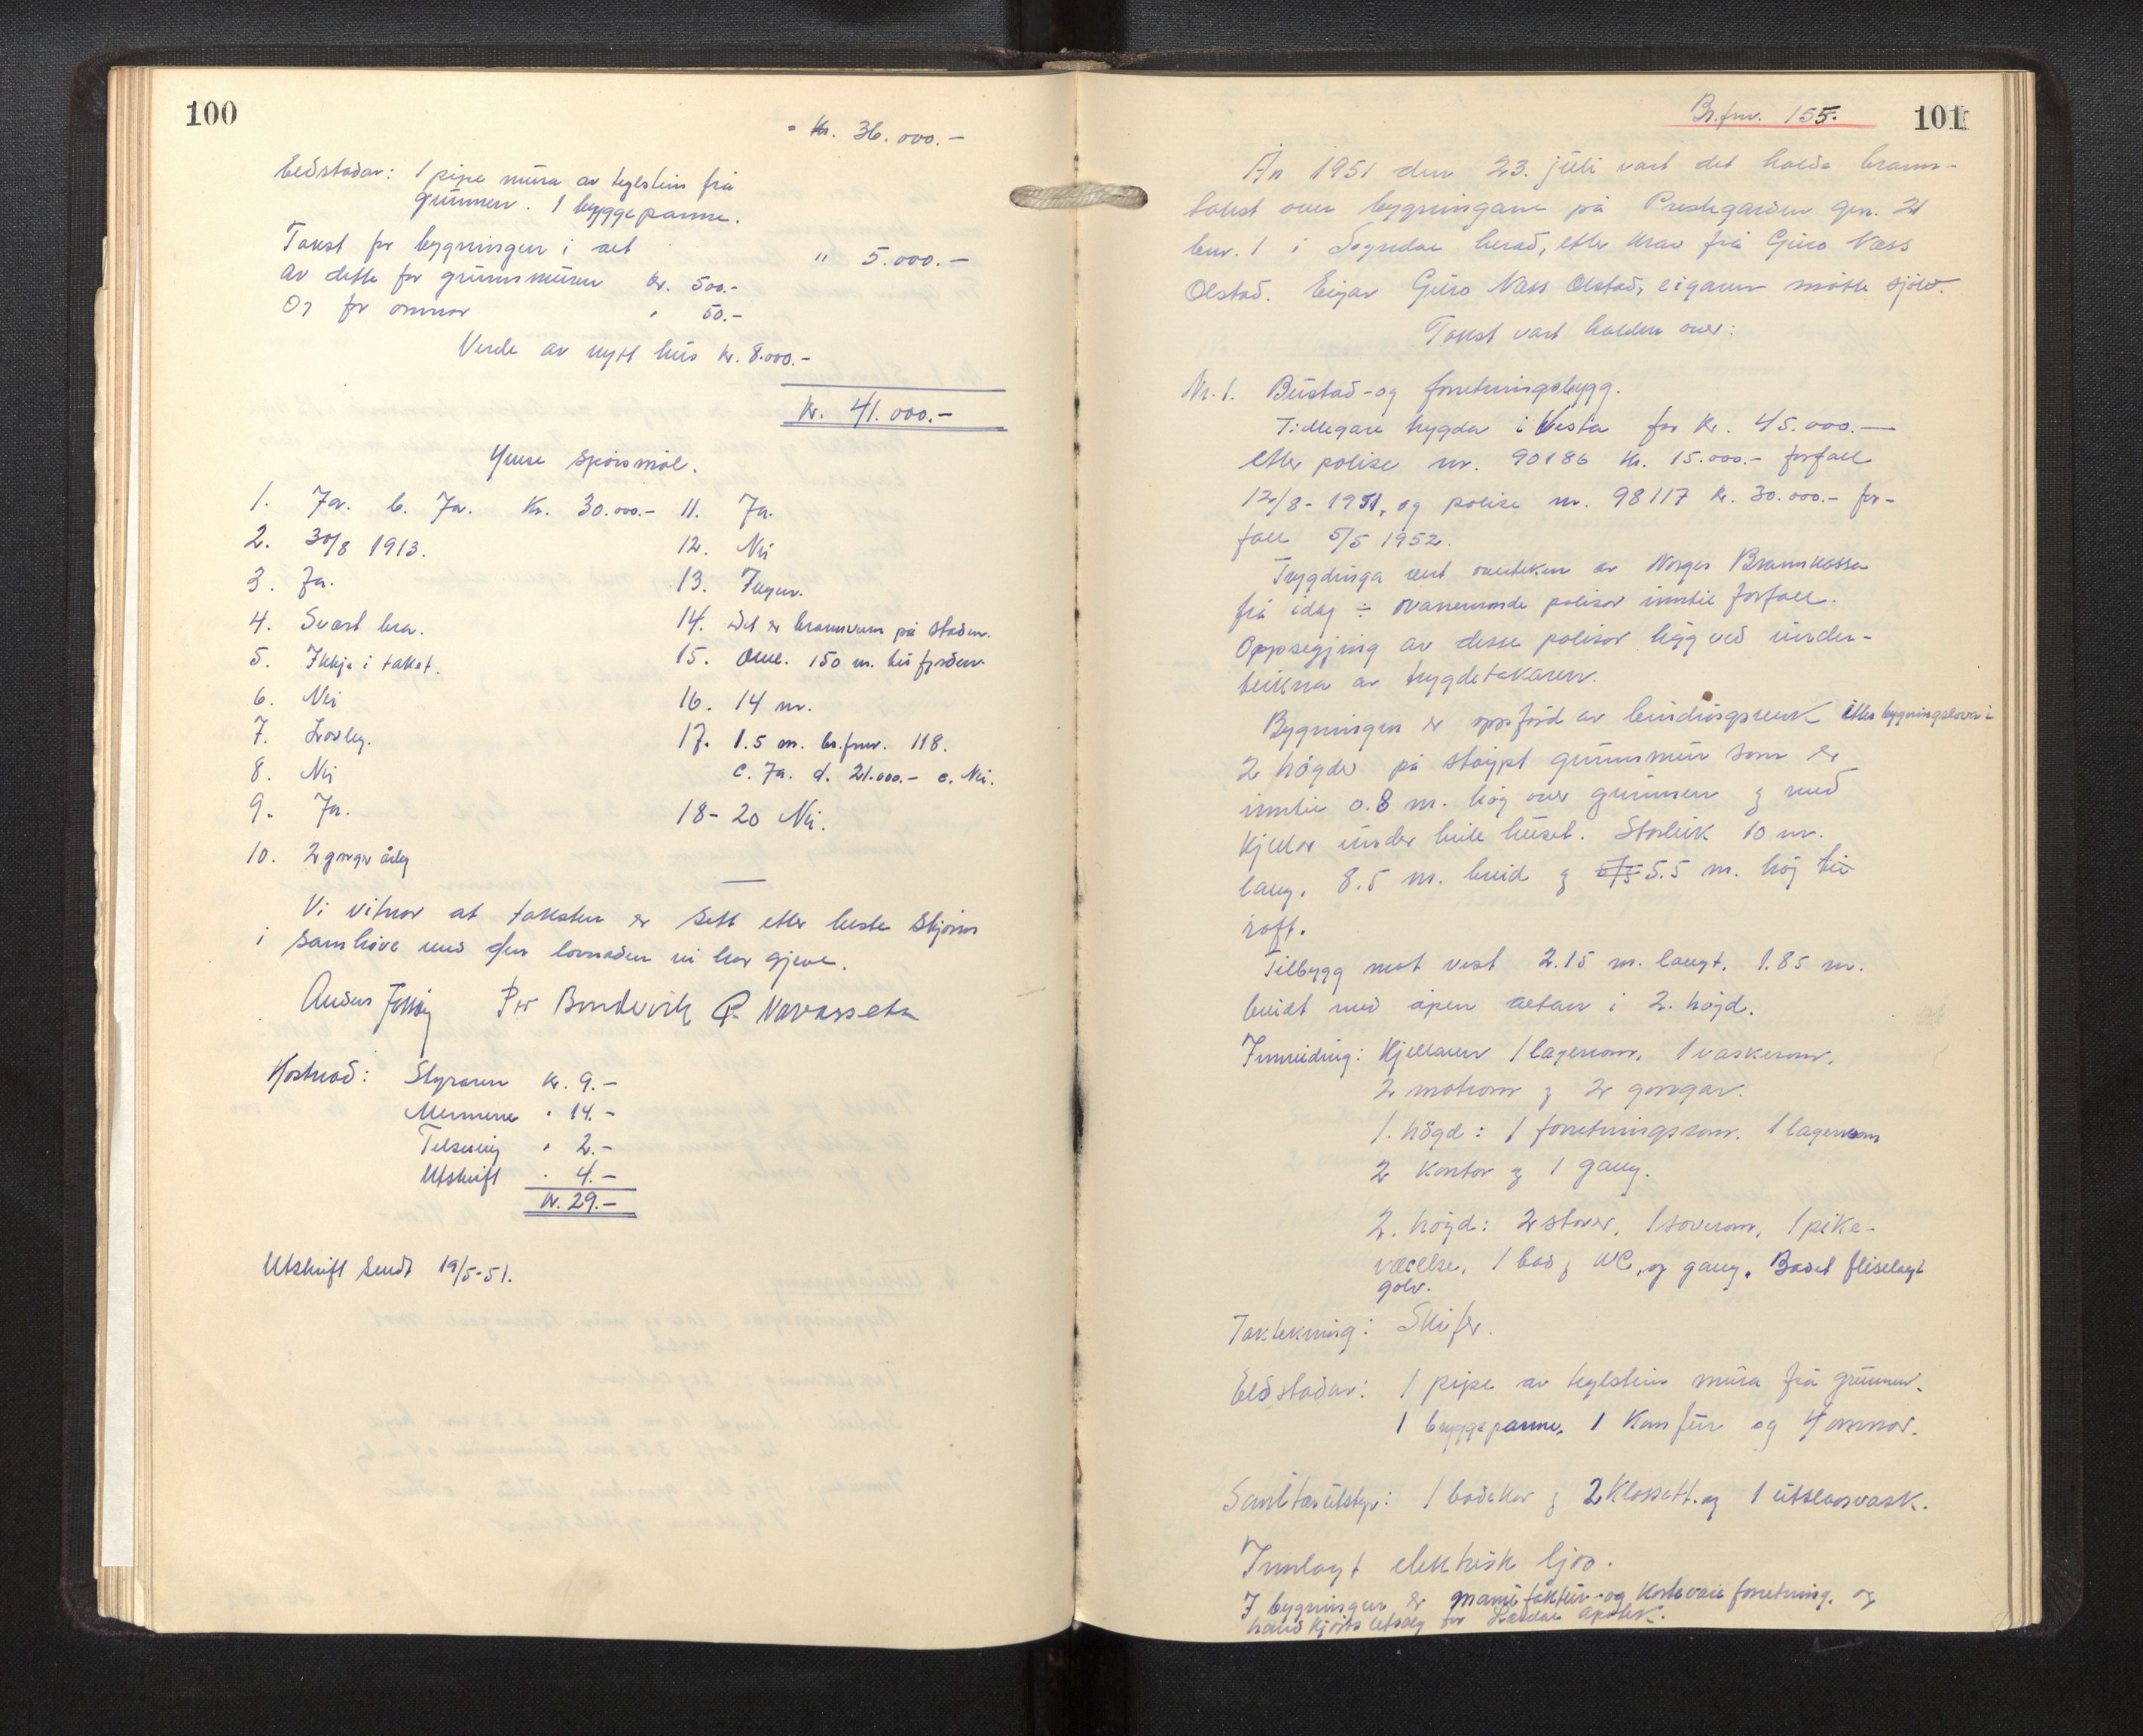 100
= Kr. 36.000.-
Eldstadar: 1 pipe mura av teglstein frå
grunnen. 1 byggepanne.
Takst for bygningen i alt " 5.000.-
Av dette for grunnmuren kr. 500.-
Og for omnar " 50.-
Verde av nytt hus kr. 8.000.-
Kr. 41.000.-
Ymse spörsmål.
1. Ja. b. Ja. Kr. 30.000.-
2. 30/8 1913.
3. Ja.
4. Svært bra.
5. Ikkje i taket.
6. Nei
7. Lovleg.
8. Nei
9. Ja.
10. 2 gonger årleg
11. Ja.
12. Nei
13. Ingen.
14. Det er brannvern på staden.
15. Oml. 150 m. til fjorden.
16. 14 m.
17. 1.5 m. br.fnr. 118.
c. Ja. d. 21.000.- e. Nei.
18-20 Nei.
Vi vitnar at taksten er sett etter beste skjönn
i samhöve med den lovnaden vi har gjeve.
Per Bondevik P. Navarsete
Kostnad: Styraren kr. 9.-
Mennene " 14.-
Telsening " 2.-
Utskrift " 4.-
Kr. 29.-
Utskrift sendt 19/5-51.
Br.fnr. 155.
101
År 1951 den 23. juli vart det halde brann-
takst over bygningane på Prestegarden gnr. 21
bnr. 1 i Sogndal herad, etter krav frå Guro Næss
Olstad. Eigar Guro Næss Olstad, eigaren mötte sjölv.
Takst vart halden over:
Nr. 1. Bustad- og forretningsbygg.
Tidlegare trygda i Vesta for kr. 45.000.-
etter polise nr. 90186 kr. 15.000.- forfall
12/8-1951, og polise nr. 98117 kr. 30.000.- for-
fall 5/5 1952.
Trygdinga vert overteken av Norges Brannkassa
frå idag ÷ ovannemnde polisar inntil forfall.
Oppsegjing av desse polisar ligg ved under-
teikna av trygdetakaren.
Bygningen er oppförd av bindingsverk etter bygningslova i
2 högder på stöypt grunnmur som er
inntil 0.8 m. höy over grunnen og med
kjellar under heile huset. Storleik 10 m.
lang, 8.5 m. breid og 5.5 m. höy til
raft.
Tilbygg mot vest 2.15 m. langt, 1.85 m.
breidt med åpen altan i 2. högd.
Innreiding: Kjellaren 1 lagerrom, 1 vaskerom,
2 matrom og 2 gongar.
1. högd: 1 forretningsrom. 1 lagerrom
2 kontor og 1 gang.
2. högd: 2 stover, 1 soverom, 1 pike-
værelse, 1 bad og WC, og gang. Badet fliselagt
golv.
Taktekning: Skifer.
Eldstadar: 1 pipe av teglstein mura frå grunnen.
1 bryggepanne, 1 komfur og 4 omnar.
Sanitærutstyr: 1 badekar og 2 klosett. og 1 utslagsvask.
Innlagt elektrisk ljos.
I bygningen er manufaktur- og kortevare forretning, og
handkjöpsutsalg for Lærdal apotek.